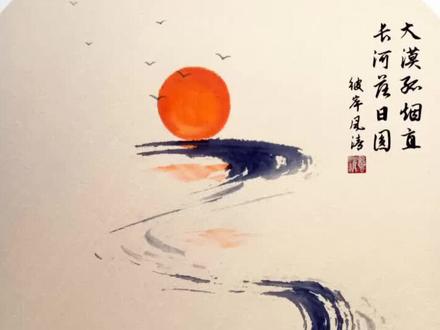 大漠孤烟直
长河落日圆
彼岸风清